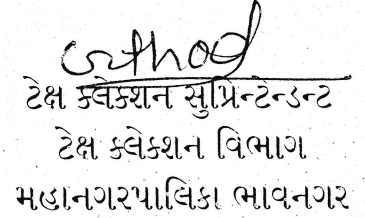 ટેક્ષ ક્લેક્શન સુપ્રિન્ટેન્ડન્ટ
ટેક્ષ ક્લેક્શન વિભાગ
મહાનગરપાલિકા ભાવનગર